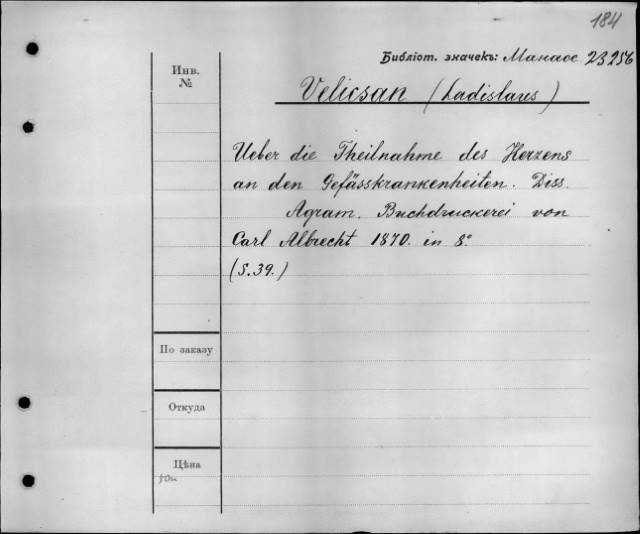 184
Библіот. значекъ: Манасс. 23256
Инв.
№
Velicsan (Ladislaus)
Ueber die Theilnahme des Herzens
an den Gefässkrankenheiten. Diss.
Agram. Buchdruckerei von
Carl Albrecht 1870. in 8°
(S. 39.)
По заказу
Откуда
Цѣна